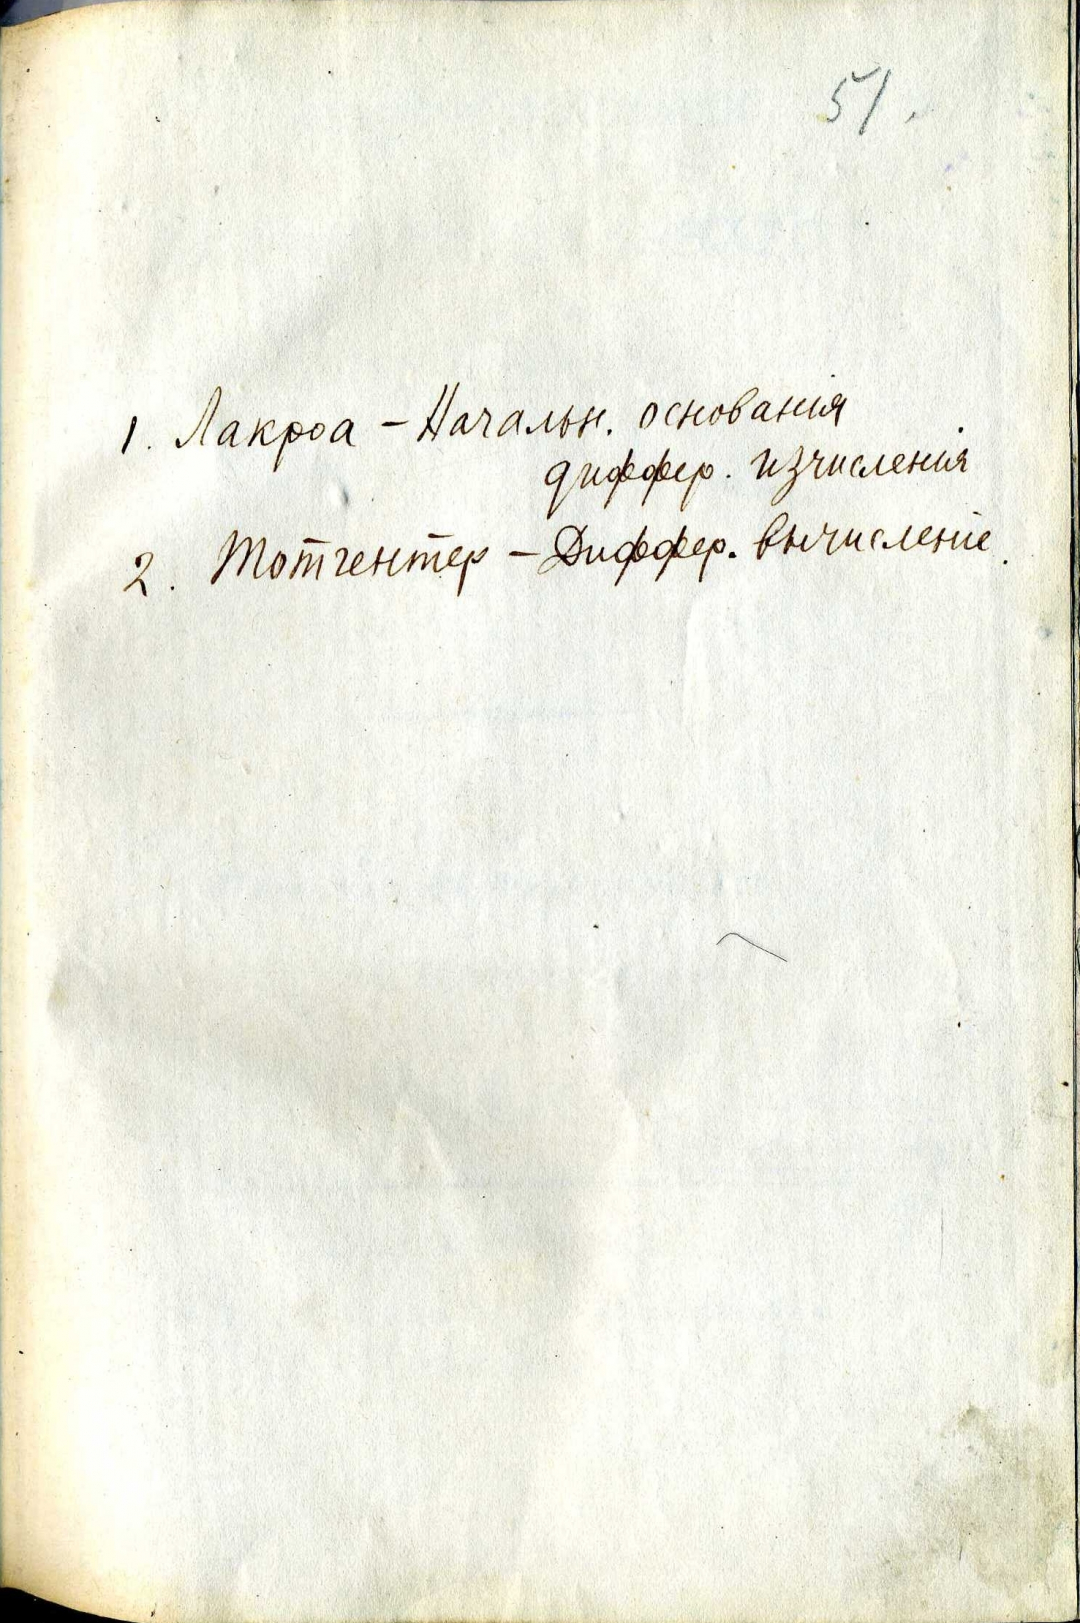 51.
1. Лакроа – Начальн. основанія
диффер. изчисленія
2. Тотгентер – Диффер. вычисленіе.